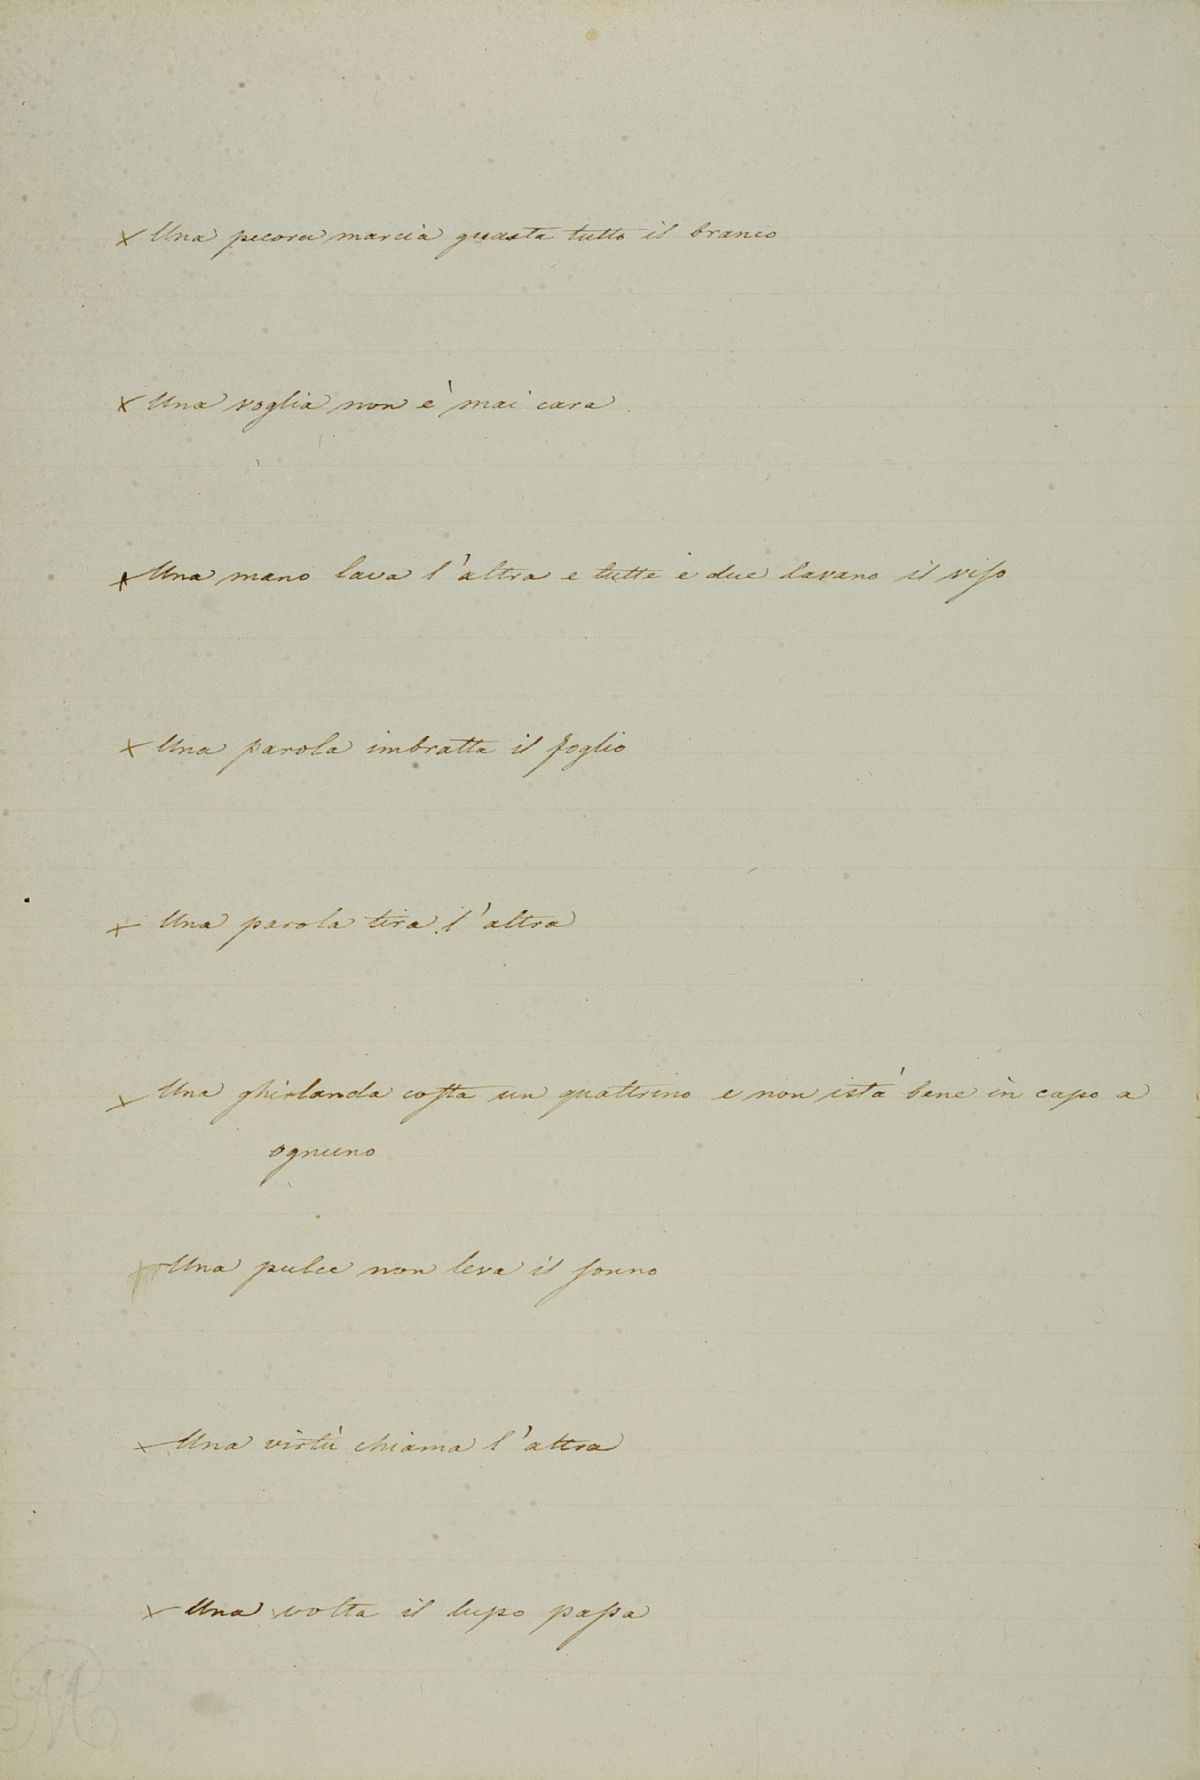 × Una pecora marcia guasta tutto il branco
× Una voglia non è mai cara
× Una mano lava l'altra e tutte e due lavano il viſo
× Una parola imbratta il foglio
× Una parola tira l'altra
× Una ghirlanda coſta un quattrino e non istá bene in capo a
ognuno
× Una pulce non leva il ſonno
× Una virtù chiama l'altra
× Una volta il lupo paſsa
M